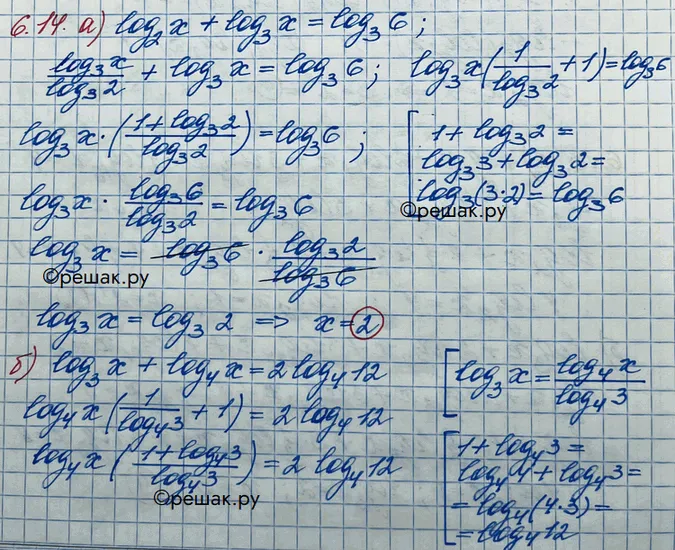 6.14. а) log₂ x + log₃ x = log₃ 6;
log₃ x / log₃ 2 + log₃ x = log₃ 6; log₃ x (1 / log₃ 2 + 1) = log₃ 6
log₃ x · ((1 + log₃ 2) / log₃ 2) = log₃ 6;
[ 1 + log₃ 2 =
log₃ 3 + log₃ 2 =
log₃ (3 · 2) = log₃ 6
©решак.ру
log₃ x · log₃ 6 / log₃ 2 = log₃ 6
log₃ x = log₃ 6 · log₃ 2 / log₃ 6
©решак.ру
log₃ x = log₃ 2 => x = 2
б) log₃ x + log₄ x = 2 log₄ 12
[ log₃ x = log₄ x / log₄ 3
log₄ x (1 / log₄ 3 + 1) = 2 log₄ 12
log₄ x ((1 + log₄ 3) / log₄ 3) = 2 log₄ 12
[ 1 + log₄ 3 =
log₄ 4 + log₄ 3 =
= log₄ (4 · 3) =
= log₄ 12
©решак.ру